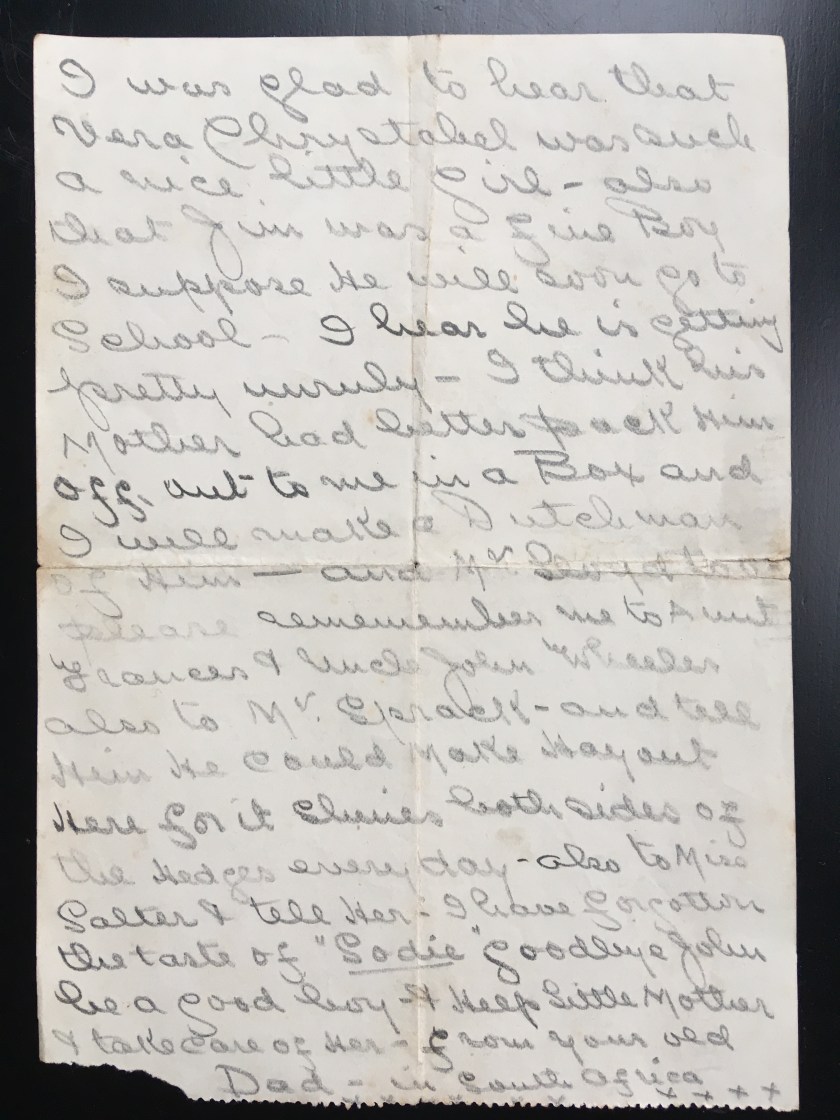 I was glad to hear that
Vera Chrystabel was such
a nice little Girl - also
that Jim was a fine Boy
I suppose He will soon go to
School - I hear he is getting
pretty unruly - I think his
Mother had better pack Him
off out to me in a Box and
I will make a Dutchman
of Him - and Mr. Lloyd too
please rememember me to Aunt
Frances & Uncle John Wheeler
also to Mr. Sprack - and tell
Him He could Make Hay out
Here for it shines both sides of
the Hedges every day - also to Miss
Salter & tell Her - I have forgotten
the taste of "Sodie" Goodbye John
be a good boy - & Help Little Mother
& take care of Her - from your old
Dad - in South Africa
x x x x x x x x x x